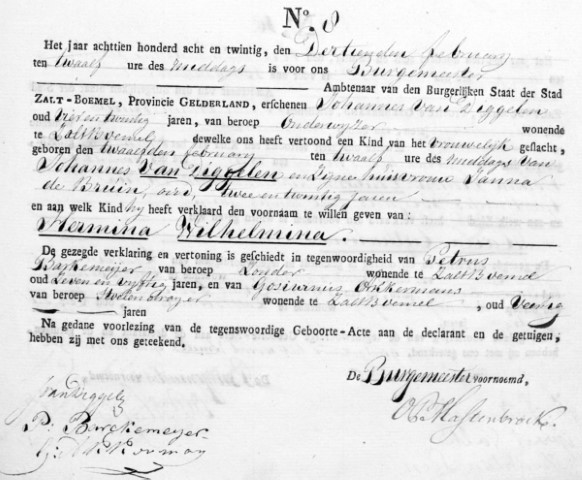 N°. 8
Het jaar achttien honderd acht en twintig, den Dertienden februarij
ten twaalf ure des middags is voor ons Burgemeester
Ambtenaar van den Burgerlijken Staat der Stad
ZALT-BOEMEL, Provincie GELDERLAND, erschenen Johannes van Diggelen
oud vier en twintig jaren, van beroep Onderwijzer wonende
te Zaltboemel dewelke ons heeft vertoond een Kind van het vrouwelijk geslacht,
geboren den twaalfden februarij ten twaalf ure des middags van
Johannes van en zijne huisvrouw Janna
de Bruin, oud, twee en twintig jaren
en aan welk Kind hij heeft verklaard den voornaam te willen geven van:
Hermina Wilhelmina.
De gezegde verklaring en vertoning is geschiedt in tegenwoordigheid van Petrus
Barkemeijer van beroep wonende te Zaltboemel
oud Zeven en vijftig jaren, en van
van beroep wonende te Zaltboemel, oud
jaren
Na gedane voorlezing van de tegenswoordige Geboorte-Acte aan de declarant en de getuigen,
hebben zij met ons geteekend.
De Burgemeester voornoemd,
van Diggelen
P. Barckemeyer